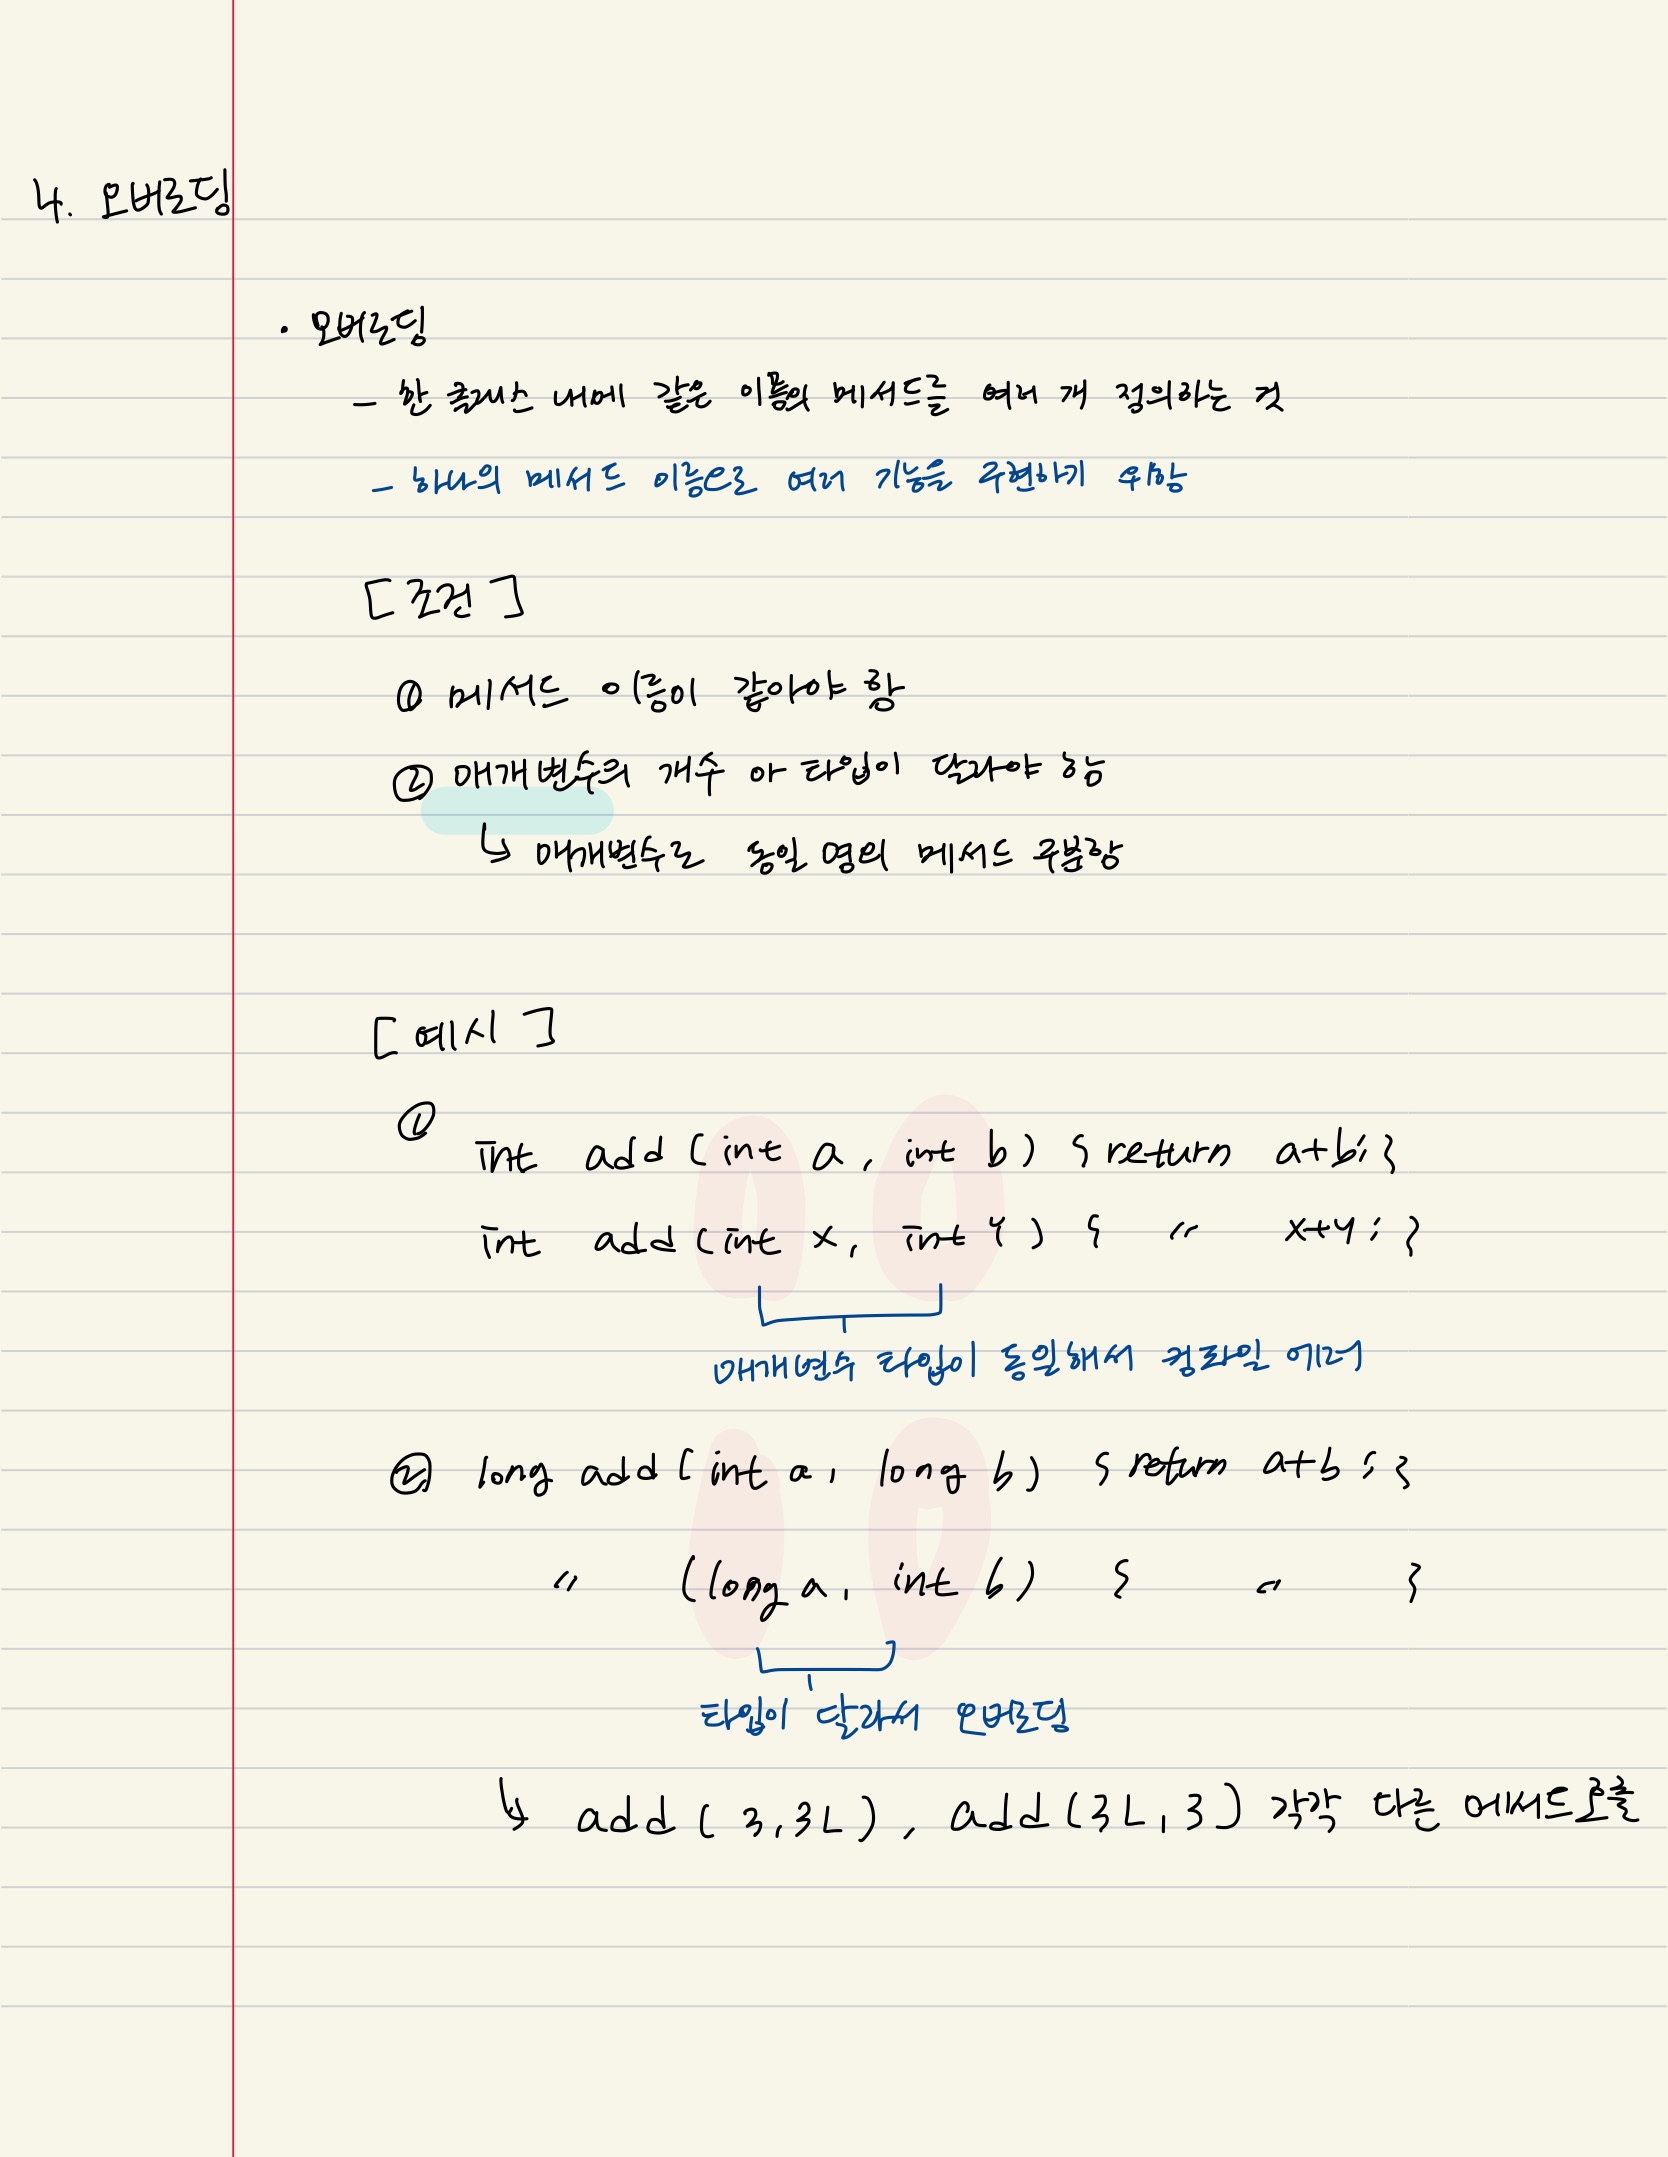 4. 오버로딩
· 오버로딩
- 한 클래스 내에 같은 이름의 메서드를 여러 개 정의하는 것
- 하나의 메서드 이름으로 여러 기능을 구현하기 위함
[ 조건 ]
① 메서드 이름이 같아야 함
② 매개변수의 개수 아 타입이 달라야 함
↳ 매개변수로 동일 명의 메서드 구분함
[ 예시 ]
①
int add (int a, int b) { return a+b; }
int add (int x, int y) { 〃 x+y; }
매개변수 타입이 동일해서 컴파일 에러
② long add (int a, long b) { return a+b; }
〃 (long a, int b) { 〃 }
타입이 달라서 오버로딩
↳ add (3, 3L), add (3L, 3) 각각 다른 메서드 호출